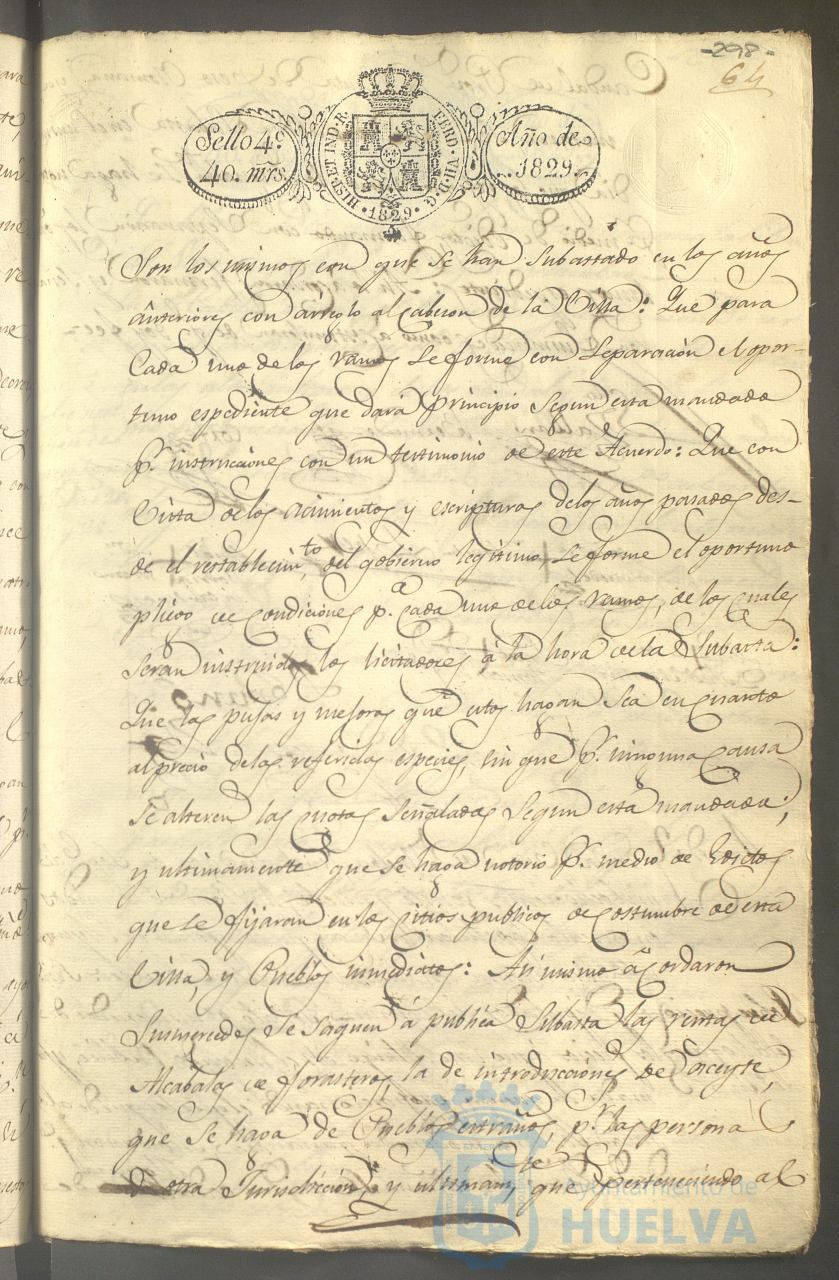 -298-
64
Sello 4º
40. mrs.
HISP. ET IND. R.
FERD. VII. D. G.
1829
Año de
1829.
Son los mismos con que se han subastado en los años
anteriores con arreglo al Cabezon de la Villa: Que para
Cada uno de los ramos se forme con separacion el opor-
tuno espediente que dará principio segun esta mandado
pr. instrucciones con un testimonio de este Acuerdo: Que con
Vista de los acimientos y escripturas delos años pasados des-
de el restablecimto. del gobierno legitimo, se forme el oportuno
pliego de Condiciones pa. Cada uno de los ramos, de los cuales
seran instruidos los licitadores á la hora de la Subasta:
Que las pujas y mejoras que estos hagan sea en cuanto
al precio de las referidas especies, sin que pr. ninguna Causa
se alteren las cuotas señaladas segun está mandado;
y ultimamente que se haga notorio pr. medio de Edictos
que se fijaran en los Citios publicos de Costumbre de esta
Villa, y Pueblos inmediatos: Asi mismo acordaron
Susmercedes se saquen á publica Subasta las rentas de
Alcabalas de forasteros, la de introducciones de aceyte,
que se haga de Pueblos estraños, pr. las persona
d otra Jurisdiccion y ultimamte. que perteneciendo al
Ayuntamiento de
HUELVA